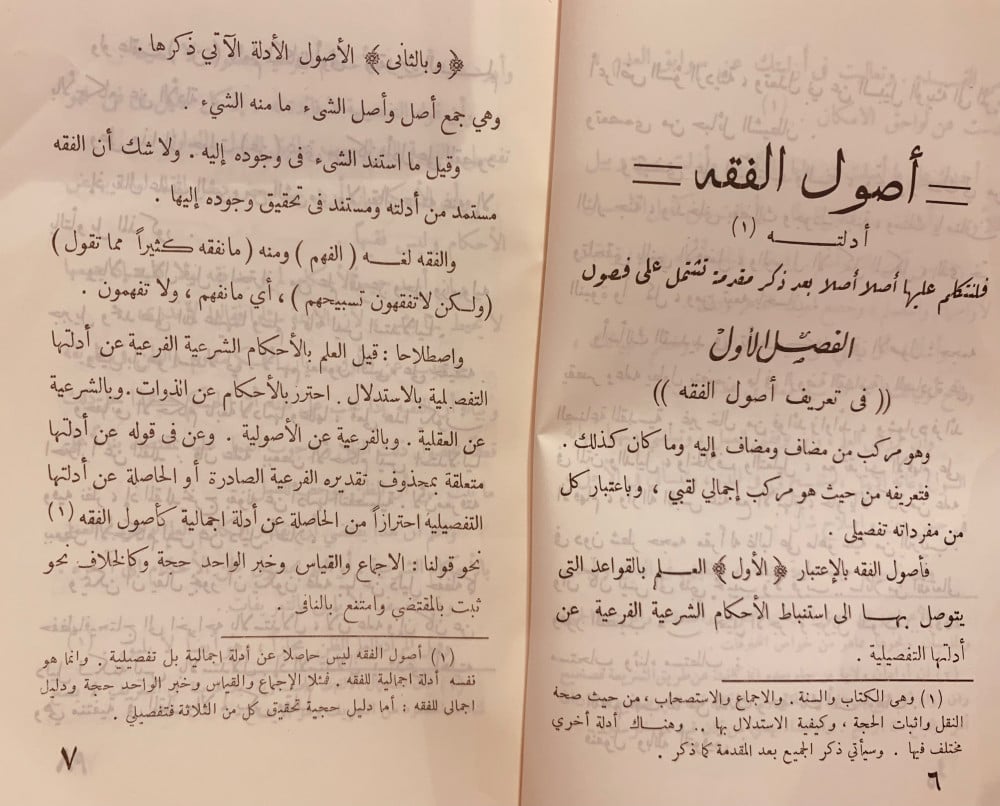 أصول الفقه
أدلتـــه (١)
فلنتكلم عليها أصلا أصلا بعد ذكر مقدمة تشتمل على فصول
الفصل الأول
(( فى تعريف أصول الفقه ))
وهو مركب من مضاف ومضاف إليه وما كان كذلك .
فتعريفه من حيث هو مركب إجمالي لقبي ، وباعتبار كل
من مفرداته تفصيلى .
فأصول الفقه بالإعتبار ﴿ الأول ﴾ العـــلم بالقواعد التى
يتوصل بهـــا الى استنباط الأحكام الشرعية الفرعية عن
أدلتها التفصيلية .
(١) وهى الكتاب والسنة . والاجماع والاستصحاب ، من حيث صحة
النقل واثبات الحجة ، وكيفية الاستدلال بها .. وهنـــاك أدلة أخري
مختلف فيها . وسيأتي ذكر الجميع بعد المقدمة كما ذكر .
٦
﴿ و بالثانى ﴾ الأصول الأدلة الآتي ذكرها .
وهي جمع أصل وأصل الشىء ما منه الشيء .
وقيل ما استند الشىء فى وجوده إليه . ولا شك أن الفقه
مستمد من أدلته ومستند فى تحقيق وجوده إليها .
والفقه لغـــه ( الفهم ) ومنه ( مانفقه كثيراً مما تقول )
(ولكن لاتفقهون تسبيحهم ) ، أي مانفهم ، ولا تفهمون .
واصطلاحا : قيل العلم بالأحكام الشرعية الفرعية عن أدلتها
التفصيلية بالاستدلال . احترز بالأحكام عن الذوات . وبالشرعية
عن العقلية . وبالفرعية عن الأصولية . وعن فى قوله عن أدلتها
متعلقة بمحذوف تقديره الفرعية الصادرة أو الحاصلة عن أدلتها
التفصيليه احترازاً من الحاصلة عن أدلة اجمالية كأصول الفقه (١)
نحو قولنا : الاجماع والقياس وخبر الواحد حجة وكالخلاف نحو
ثبت بالمقتضى وامتنع بالنافى .
(١) أصول الفقه ليس حاصلا عن أدلة اجمالية بل تفصيلية . وانما هو
نفسه أدلة اجمالية للفقه . فمثلا الإجماع والقياس وخبر الواحد حجة ودليل
اجمالى للفقه : أما دليل حجية تحقيق كل من الثلاثة فتفصيلي .
٧